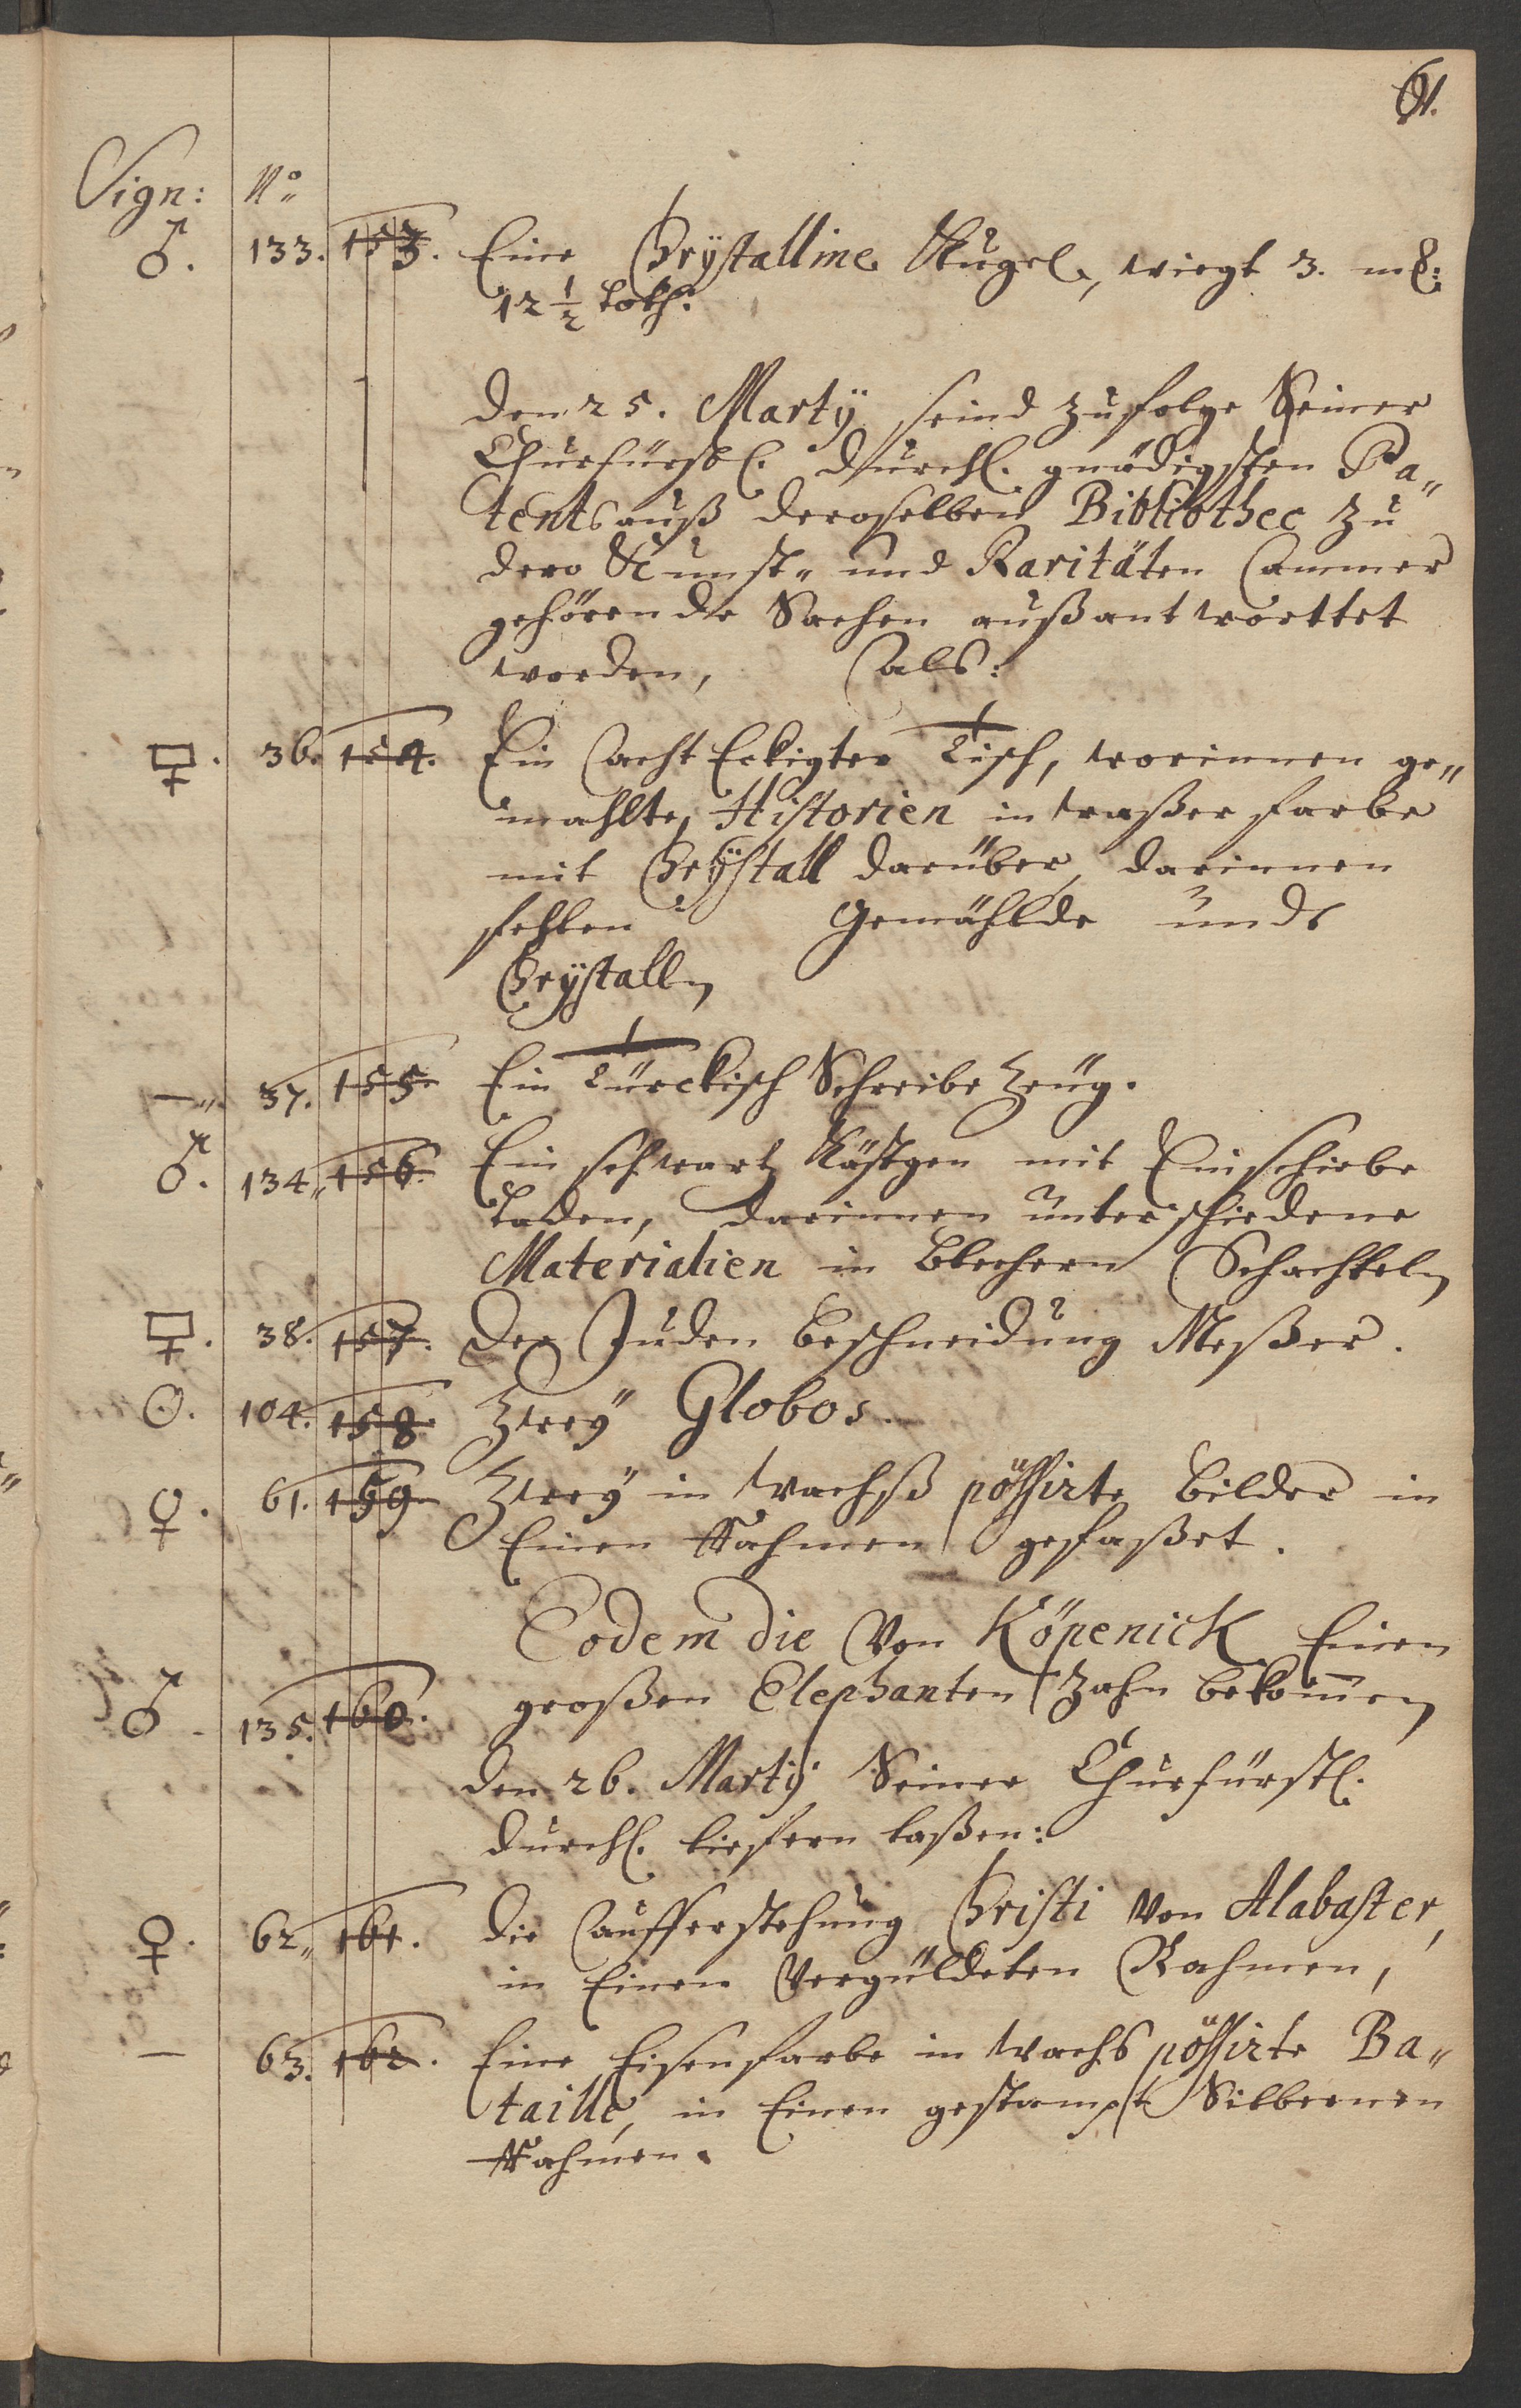 61.
Sign: No
♂. 133. 153. Eine Crÿstalline Kugel, wiegt 3. m␤:
12 1/2 Loth:
Den 25. Martÿ seind zufolge Seiner
Churfürstl. Durchl. gnädigsten Pa„
tents auß deroselben Bibliothec zu
dero Kunst„ und Raritäten Cammer
gehörende Sachen außantworttet
worden, als:
36. 154. Ein acht Eckigter Tisch, worinnen ge„
mahlte Historien in waßer farbe
mit Crÿstall darüber, darinnen
fehlen Gemählde und
Crÿstallen
—„ 37. 155. Ein Türckisch Schreibe Zeug.
♂. 134„ 156. Ein schwartz Kästgen mit Einschiebe
Laden, darinnen unterschiedene
Materialien in Blechern Schachteln
38. 157. Der Juden Beschneidung Meßer.
☉. 104. 158. Zweÿ Globos.
♀. 61. 159. Zweÿ in Wachß pössirte Bilder in
Einen Rahmen gefaßet.
Eodem die Von Köpenick Einen
♂. 135. 160. großen Elephanten Zahn bekommen
Den 26. Martÿ Seiner Churfürstl.
Durchl. liefern laßen:
♀. 62„ 161. Die aufferstehung Christi von Alabaster,
in Einen Vergüldeten Rahmen,
— 63. 162. Eine Eisenfarbe in Wachs pössirte Ba„
taille, in Einen gestampt Silbernen
Rahmen.